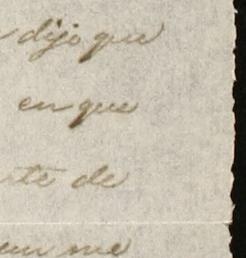 dijo que
en que
de
me